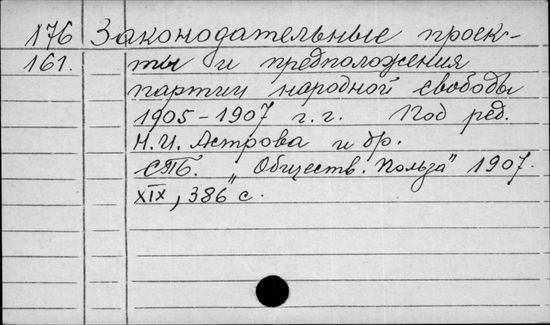 176 Законодательные проек-
161. ты и предположения
партии народной свободы
1905-1907 г.г. Под ред.
Н.И. Астрова и др.
СПБ. „Обществ. Польза" 1907.
XIX, 386 с.